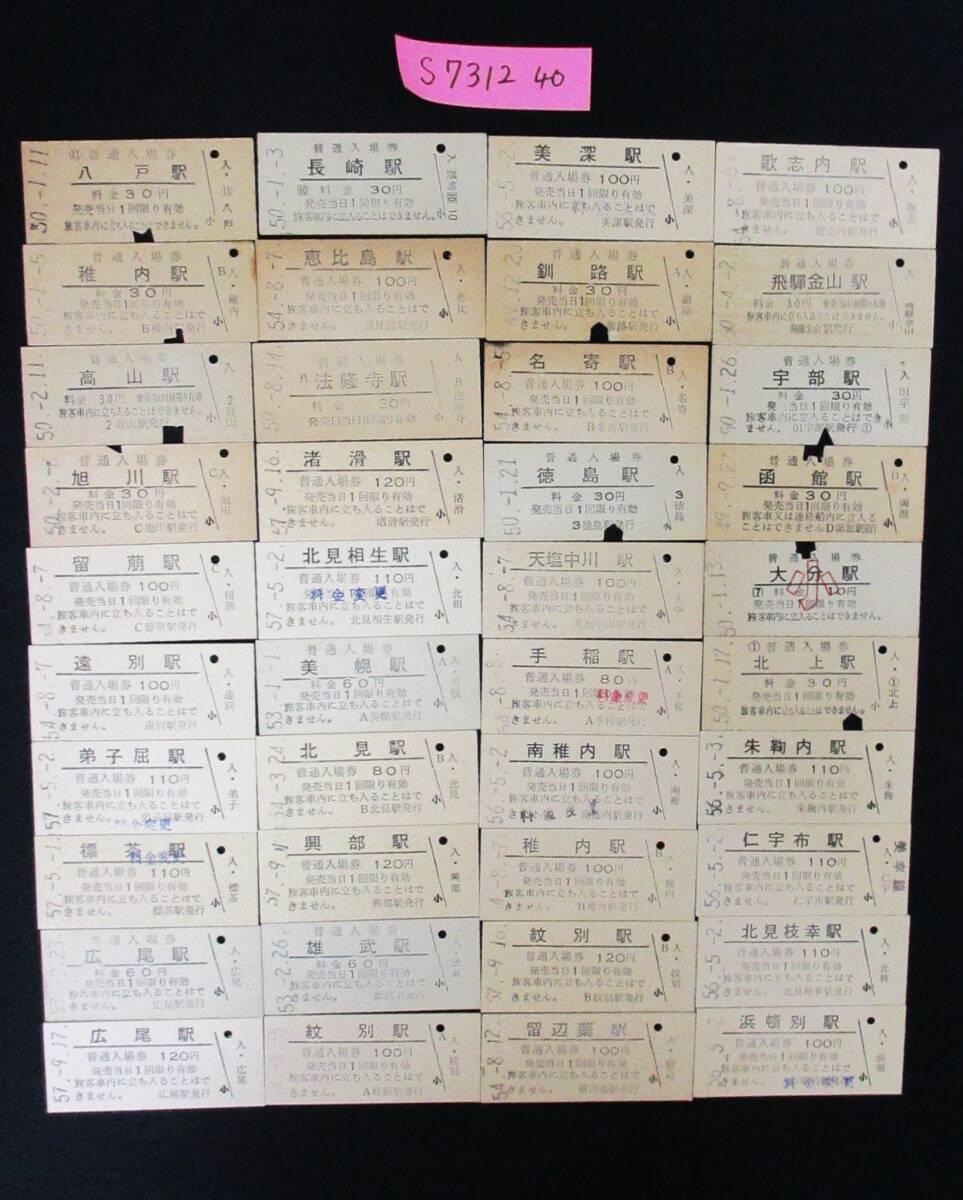 S7312 40
50.-1.11
⑪普通入場券
八戸駅
料金30円
発売当日1回限り有効
旅客車内に立ち入ることはできません。
50.-1.-3
普通入場券
長崎駅
料金 30円
発売当日1回限り有効
旅客車内に立入ることはできません。
56.-5.-2
美深駅
普通入場券 100円
発売当日1回限り有効
旅客車内に立ち入ることはできません。
美深駅発行
歌志内駅
普通入場券 100円
発売当日1回限り有効
旅客車内に立ち入ることはできません。
歌志内駅発行
普通入場券
稚内駅
料金30円
発売当日1回限り有効
旅客車内に立ち入ることはできません。
B稚内駅発行
54.-8.-7
恵比島駅
普通入場券 100円
発売当日1回限り有効
旅客車内に立ち入ることはできません。
恵比島駅発行
普通入場券
釧路駅
料金30円
発売当日1回限り有効
旅客車内に立ち入ることはできません。
釧路駅発行
普通入場券
飛騨金山駅
料金 30円 発売当日1回限り有効
旅客車内に立ち入ることはできません。
飛騨金山駅発行
50.-2.11
普通入場券
高山駅
料金 30円 発売当日1回限り有効
旅客車内に立ち入ることはできません。
2高山駅発行
50.-8.14
普通入場券
法隆寺駅
料金 30円
発売当日1回限り有効
54.-8.-5
名寄駅
普通入場券 100円
発売当日1回限り有効
旅客車内に立ち入ることはできません。
B名寄駅発行
50.-1.26
普通入場券
宇部駅
料金 30円
発売当日1回限り有効
旅客車内に立ち入ることはできません。
01宇部駅発行①
普通入場券
旭川駅
料金30円
発売当日1回限り有効
旅客車内に立ち入ることはできません。
C旭川駅発行
57.-9.16
渚滑駅
普通入場券 120円
発売当日1回限り有効
旅客車内に立ち入ることはできません。
渚滑駅発行
50.-1.21
普通入場券
徳島駅
料金 30円
発売当日1回限り有効
旅客車内に立ち入ることはできません。
3徳島駅発行
49.-9.27
普通入場券
函館駅
料金30円
発売当日1回限り有効
旅客車内又は連絡船内に立ち入ることはできませんD函館駅発行
留萠駅
普通入場券 100円
発売当日1回限り有効
旅客車内に立ち入ることはできません。
C留萠駅発行
57.-5.-2
北見相生駅
普通入場券 110円
料金変更
発売当日1回限り有効
旅客車内に立ち入ることはできません。
北見相生駅発行
54.-8.-7
天塩中川駅
普通入場券 100円
発売当日1回限り有効
旅客車内に立ち入ることはできません。
天塩中川駅発行
50.-1.13
普通入場券
大分駅
小
発売当日1回限り有効
旅客車内に立ち入ることはできません。
54.-8.-7
遠別駅
普通入場券 100円
発売当日1回限り有効
旅客車内に立ち入ることはできません。
遠別駅発行
53.-1.-1
普通入場券
美幌駅
料金60円
発売当日1回限り有効
旅客車内に立ち入ることはできません。
A美幌駅発行
手稲駅
普通入場券 80円
料金変更
発売当日1回限り有効
旅客車内に立ち入ることはできません。
A手稲駅発行
50.-1.17
①普通入場券
北上駅
料金30円
発売当日1回限り有効
旅客車内に立ち入ることはできません。
57.-5.-2
弟子屈駅
普通入場券 110円
発売当日1回限り有効
旅客車内に立ち入ることはできません。
弟子屈駅発行
54.-3.24
北見駅
普通入場券 80円
発売当日1回限り有効
旅客車内に立ち入ることはできません。
B北見駅発行
56.-5.-2
南稚内駅
普通入場券 100円
発売当日1回限り有効
旅客車内に立ち入ることはできません。
南稚内駅発行
56.-5.-3
朱鞠内駅
普通入場券 110円
発売当日1回限り有効
旅客車内に立ち入ることはできません。
朱鞠内駅発行
57.-5.-1
標茶駅
料金変更
普通入場券 110円
発売当日1回限り有効
旅客車内に立ち入ることはできません。
標茶駅発行
57.-9.11
興部駅
普通入場券 120円
発売当日1回限り有効
旅客車内に立ち入ることはできません。
興部駅発行
稚内駅
普通入場券 100円
発売当日1回限り有効
旅客車内に立ち入ることはできません。
B稚内駅発行
56.-5.-2
仁宇布駅
普通入場券 110円
発売当日1回限り有効
旅客車内に立ち入ることはできません。
仁宇布駅発行
普通入場券
広尾駅
料金60円
発売当日1回限り有効
旅客車内に立ち入ることはできません。
広尾駅発行
53.-2.26
普通入場券
雄武駅
料金60円
発売当日1回限り有効
旅客車内に立ち入ることはできません。
雄武駅発行
57.-9.16
紋別駅
普通入場券 120円
発売当日1回限り有効
旅客車内に立ち入ることはできません。
B紋別駅発行
56.-5.-2
北見枝幸駅
普通入場券 110円
発売当日1回限り有効
旅客車内に立ち入ることはできません。
北見枝幸駅発行
57.-9.17
広尾駅
普通入場券 120円
発売当日1回限り有効
旅客車内に立ち入ることはできません。
広尾駅発行
紋別駅
普通入場券 100円
発売当日1回限り有効
旅客車内に立ち入ることはできません。
A紋別駅発行
54.-8.12
留辺蘂駅
普通入場券 100円
発売当日1回限り有効
旅客車内に立ち入ることはできません。
留辺蘂駅発行
56.-5.-2
浜頓別駅
普通入場券 100円
発売当日1回限り有効
旅客車内に立ち入ることはできません。
料金変更